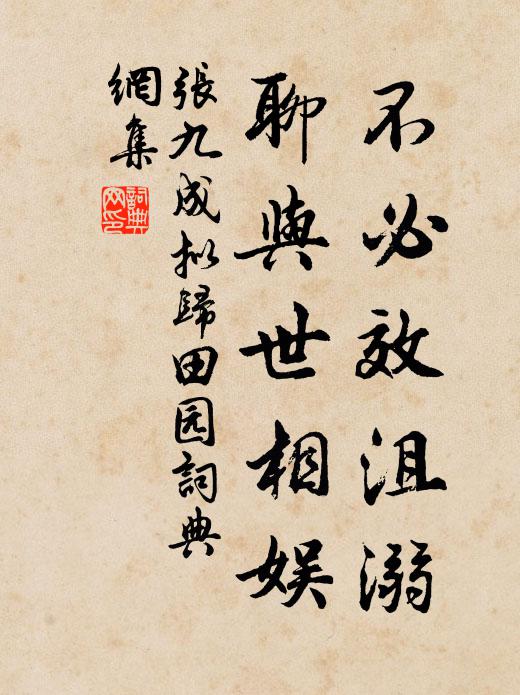 不必效沮溺
聊與世相娱
張九成拟歸田园詞典
網集
詞典
网印